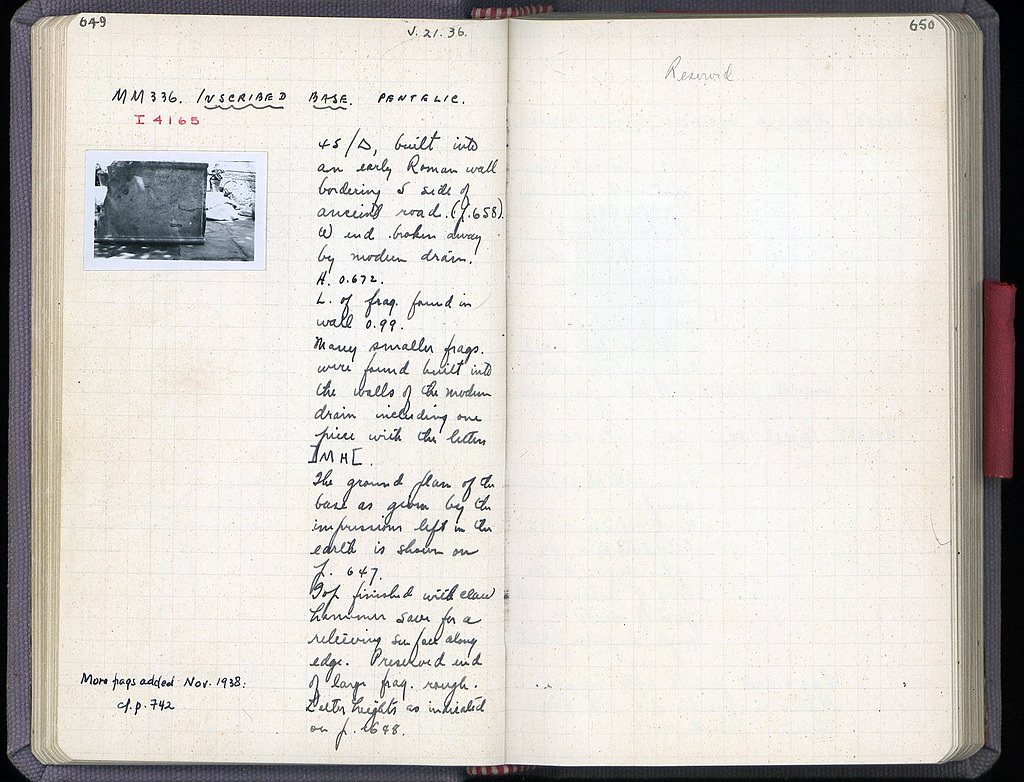 649
V. 21. 36.
MM336. INSCRIBED BASE. PENTELIC.
I 4165
45/Δ, built into
an early Roman wall
bordering S side of
ancient road. (p. 658)
W end broken away
by modern drain.
H. 0.672.
L. of frag. found in
wall 0.99.
Many smaller frags.
were found built into
the walls of the modern
drain including one
piece with the letters
]MH[.
The ground plan of the
base as given by the
impressions left in the
earth is shown on
p. 647.
Top finished with claw
hammer save for a
receiving surface along
edge. Preserved end
of large frag. rough.
Letter heights as indicated
on p. 648.
More frags added Nov. 1938.
cf. p. 742
650
Reserved